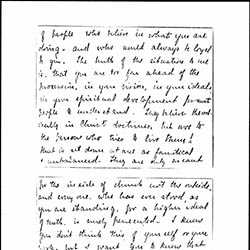 of people who believe in what you are
doing - and who would always be loyal
to you. The truth of the situation to me
is, that you are too far ahead of the
procession, in your vision, in your ideals
in your spiritual development for most
people to understand. They believe them-
selves in Christ doctrines, but woe to
the person who tries to live them!
that is set down at one as fanatical
& unbalanced. They are only as cant
for the inside of church not the outside,
and every one who has ever stood, as
you are standing, for a higher ideal
of truth, is surely persecuted. I know
you don't think this of yourself or your
work, but I want you to know that